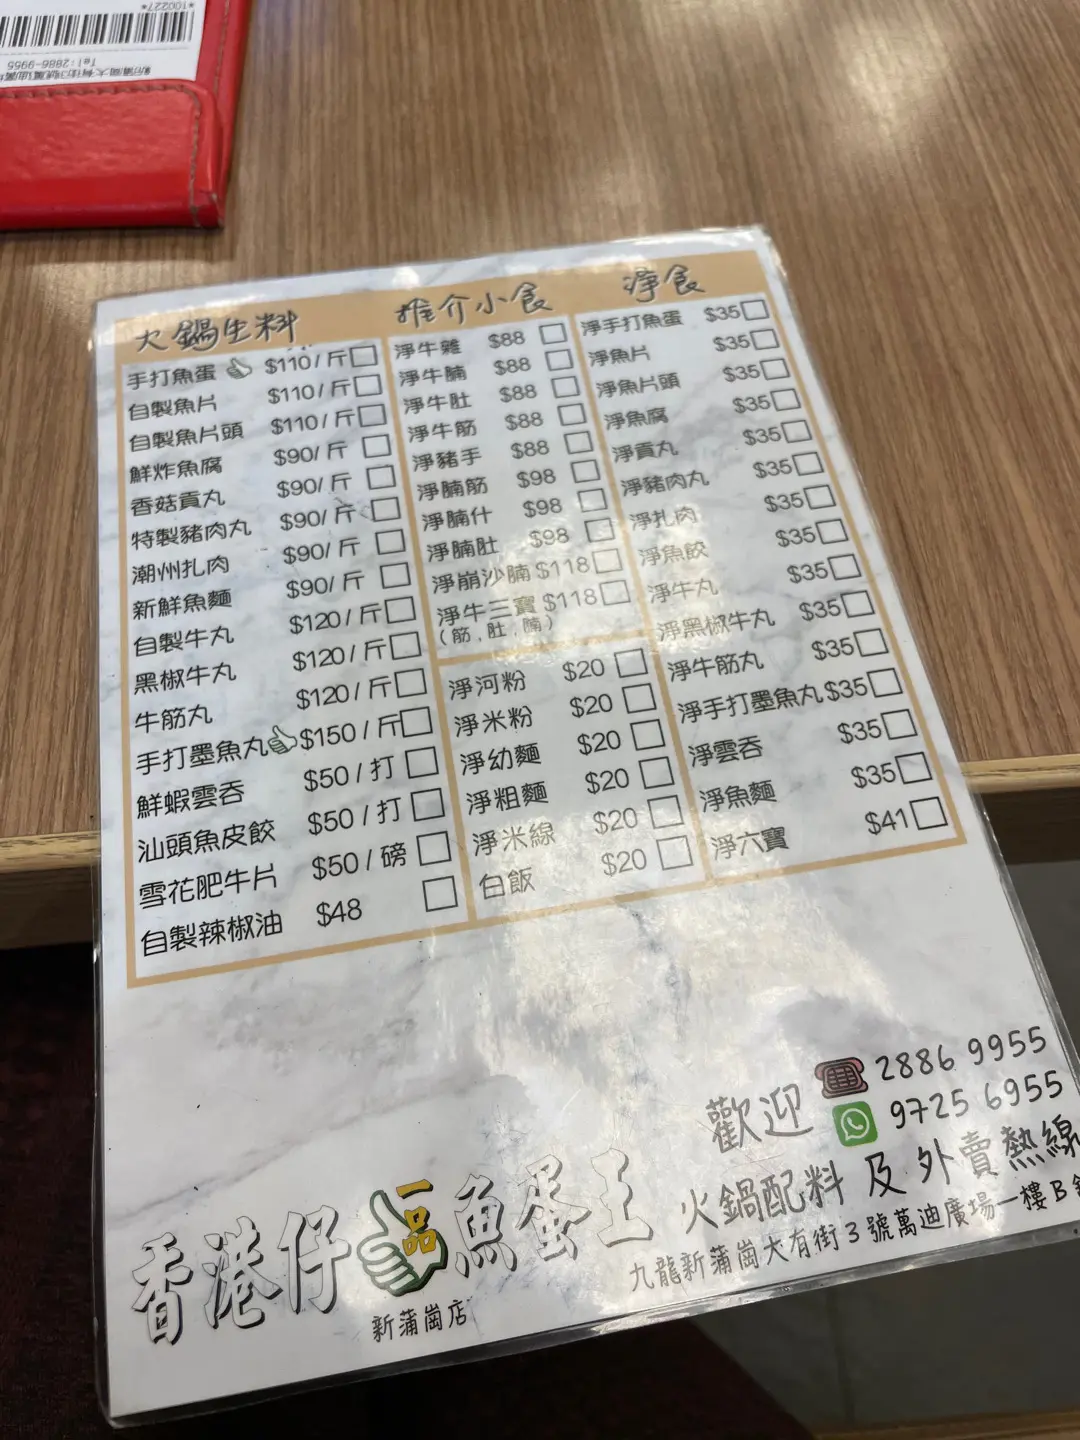 *100227*
Tel:2886-9955
新蒲崗大有街3號萬迪廣
火鍋生料
手打魚蛋 $110/斤
自製魚片 $110/斤
自製魚片頭 $110/斤
鮮炸魚腐 $90/斤
香菇貢丸 $90/斤
特製豬肉丸 $90/斤
潮州扎肉 $90/斤
新鮮魚麵 $90/斤
自製牛丸 $120/斤
黑椒牛丸 $120/斤
牛筋丸 $120/斤
手打墨魚丸 $150/斤
鮮蝦雲吞 $50/打
汕頭魚皮餃 $50/打
雪花肥牛片 $50/磅
自製辣椒油 $48
推介小食
淨牛雜 $88
淨牛腩 $88
淨牛肚 $88
淨牛筋 $88
淨豬手 $88
淨腩筋 $98
淨腩什 $98
淨腩肚 $98
淨崩沙腩 $118
淨牛三寶 $118
(筋,肚,腩)
淨河粉 $20
淨米粉 $20
淨幼麵 $20
淨粗麵 $20
淨米線 $20
白飯 $20
淨食
淨手打魚蛋 $35
淨魚片 $35
淨魚片頭 $35
淨魚腐 $35
淨貢丸 $35
淨豬肉丸 $35
淨扎肉 $35
淨魚餃 $35
淨牛丸 $35
淨黑椒牛丸 $35
淨牛筋丸 $35
淨手打墨魚丸 $35
淨雲吞 $35
淨魚麵 $35
淨六寶 $41
歡迎 2886 9955
9725 6955
火鍋配料 及 外賣熱線
九龍新蒲崗大有街3號萬迪廣場一樓B
香港仔一品魚蛋王
新蒲崗店